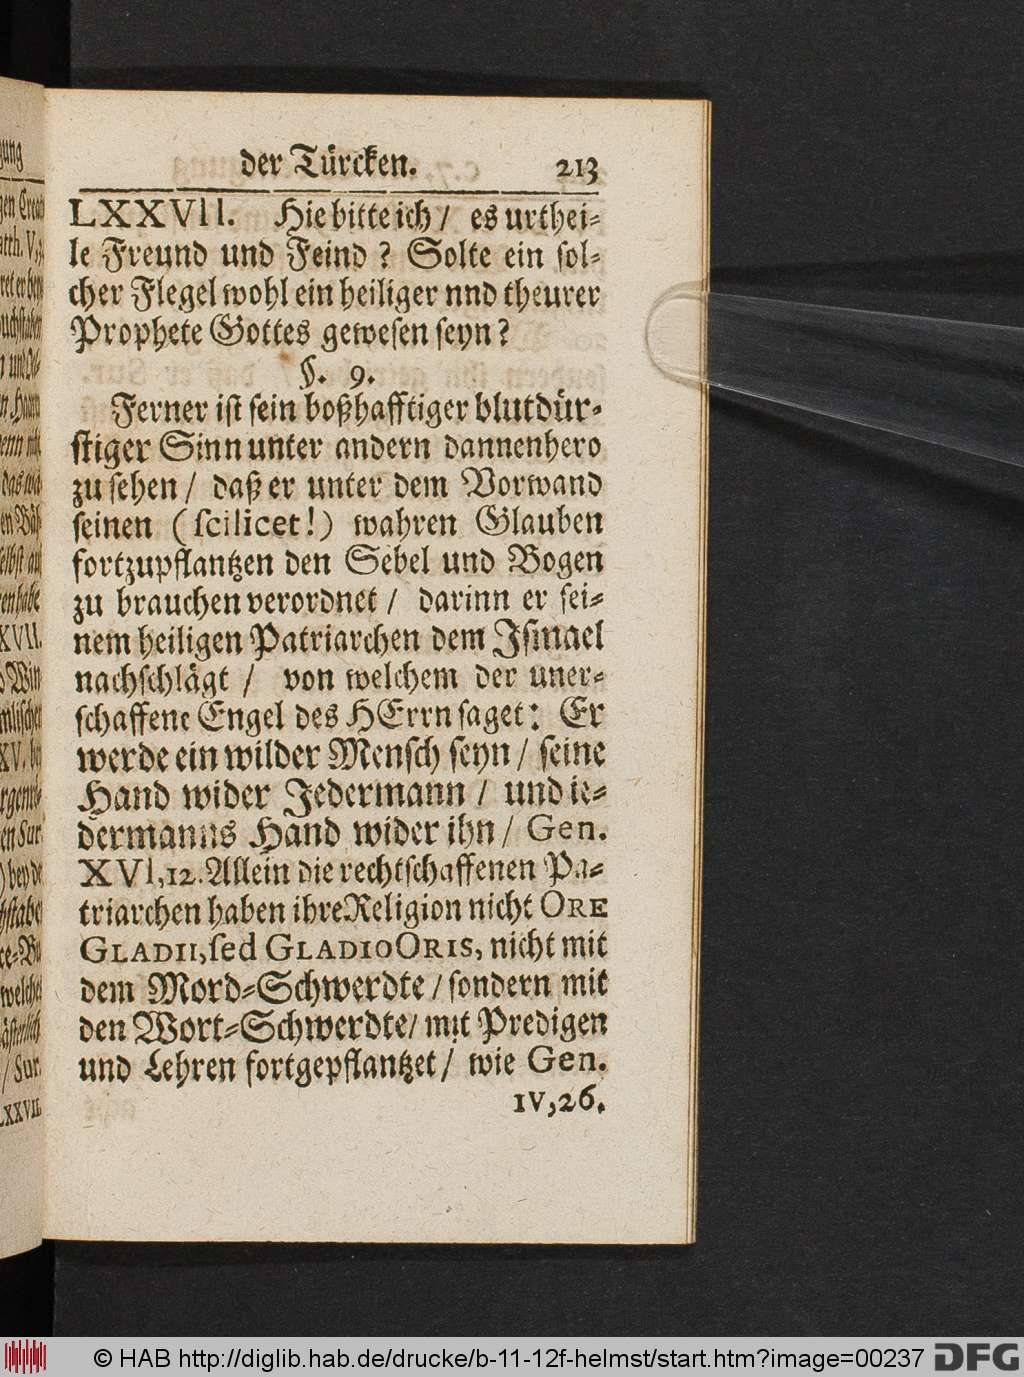 der Türcken. 213
LXXVII. Hie bitte ich / es urthei-
le Freund und Feind ? Solte ein sol-
cher Flegel wohl ein heiliger nnd theurer
Prophete Gottes gewesen seyn ?
§. 9.
Ferner ist sein boßhafftiger blutdür-
stiger Sinn unter andern dannenhero
zu sehen / daß er unter dem Vorwand
seinen (scilicet!) wahren Glauben
fortzupflantzen den Sebel und Bogen
zu brauchen verordnet / darinn er sei-
nem heiligen Patriarchen dem Ismael
nachschlägt / von welchem der uner-
schaffene Engel des HErrn saget: Er
werde ein wilder Mensch seyn / seine
Hand wider Jedermann / und ie-
dermanns Hand wider ihn / Gen.
XVI,12. Allein die rechtschaffenen Pa-
triarchen haben ihre Religion nicht ORE
GLADII, sed GLADIO ORIS, nicht mit
dem Mord-Schwerdte / sondern mit
den Wort-Schwerdte / mit Predigen
und Lehren fortgepflantzet / wie Gen.
IV,26.
© HAB http://diglib.hab.de/drucke/b-11-12f-helmst/start.htm?image=00237 DFG